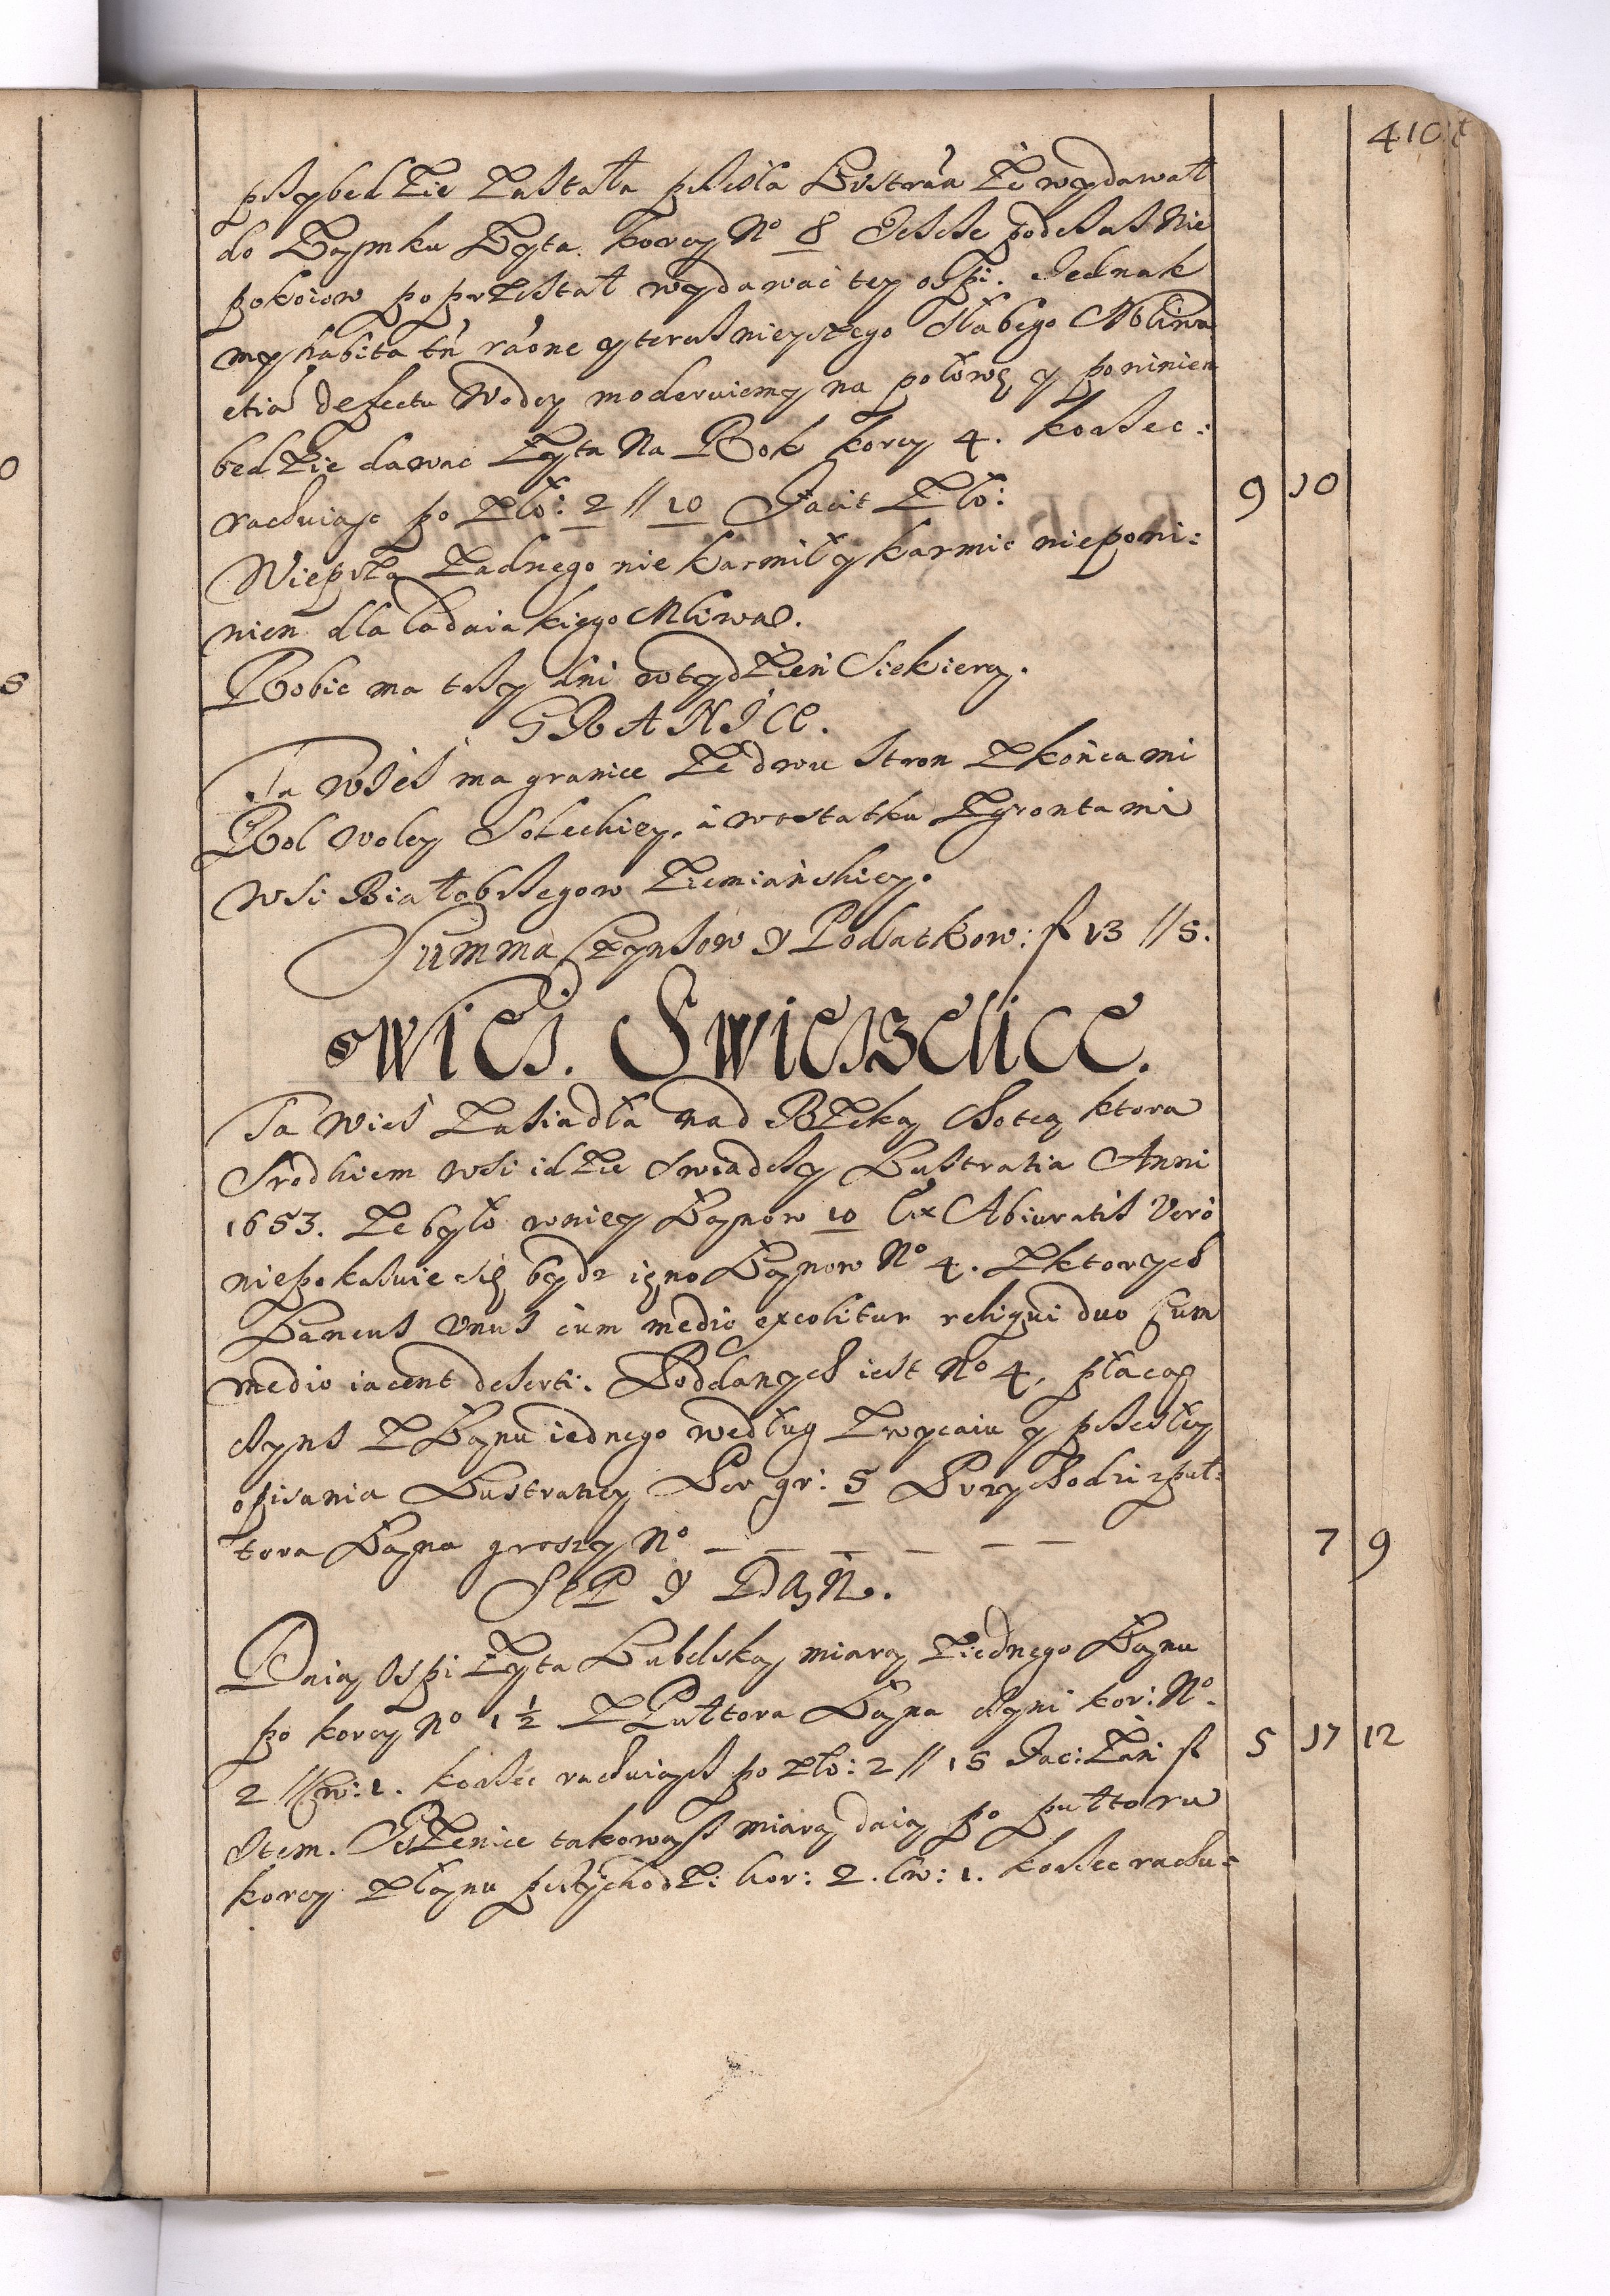 410
przybędzie zastała przeszła Lustraa że wydawał
do Zaymku Zyta korcy No 8 Jescze podczas Nie
pokoiow poprzestał wydawać tey ospi. Jednak
my habita tn raone y teraznieyszego słabego Mliwa
etia defectu Wody moderuiemy na połowę y powinien
bedzie dawac Zyta Na Rok korcy 4. korzec:
rachuiąc po Zło: 2 // 10 Facit Zło: 9 10
Wieprza Zadnego nie karmił y karmic niepowi:
nien dla ladaiakiego Mliwa.
Robic ma trzy dni wtydzień Siekierą.
GRANICE.
Ta Wieś ma granice Ze dwu stron Zkońcami
Rol Woley Soleckiey, a wostatku Zgrontami
Wsi Białobrzegow Ziemiańskiey.
Summa Czynszow y Podatkow: f 13 // 5.
Wies. Swieszelice.
Ta Wieś Zasiadła nad Rzeką Chotczą ktora
Srodkiem wsi idzie swiadczy Lustratia Anni
1653. Ze było wniey Łanow 10 Ex Abiuratis Vero
niepokazuie się bydz ieno Łanow No 4. Zktorych
Laneus Unus cum medio excolitur reliqui duo Cum
medio iacent deserti. Poddanych iest No 4, płacą
czynsz Z Łanu iednego według Zwyczaiu y przeszłey
opisania Lustratiey Per gr: 5 Przychodzi z puł:
tora Łana groszy No _ _ _ _ _ _ 7 9
SEP Y DAŃ.
Daią Ospi Zyta Lubelską miarą Ziednego Łanu
po korcy No 1 ½ Z Pułtora Łana czyni kor: No.
2 // Cw: 1. korzec rachuiąc po zło: 2 // 15 Faci: Zani f 5 17 12
Item. Pszenice takowąsz miarą daią po pułtoru
korcy Złanu przychodzi kor: 2. Cw: 1. korzec rachu=